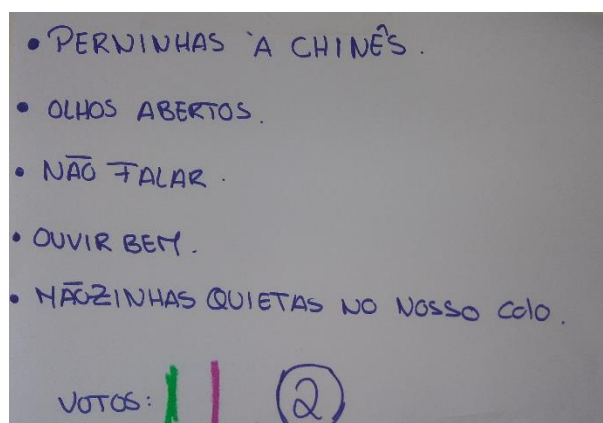 • PERNINHAS À CHINÊS.
• OLHOS ABERTOS.
• NÃO FALAR.
• OUVIR BEM.
• MÃOZINHAS QUIETAS NO NOSSO COLO.
VOTOS: 2